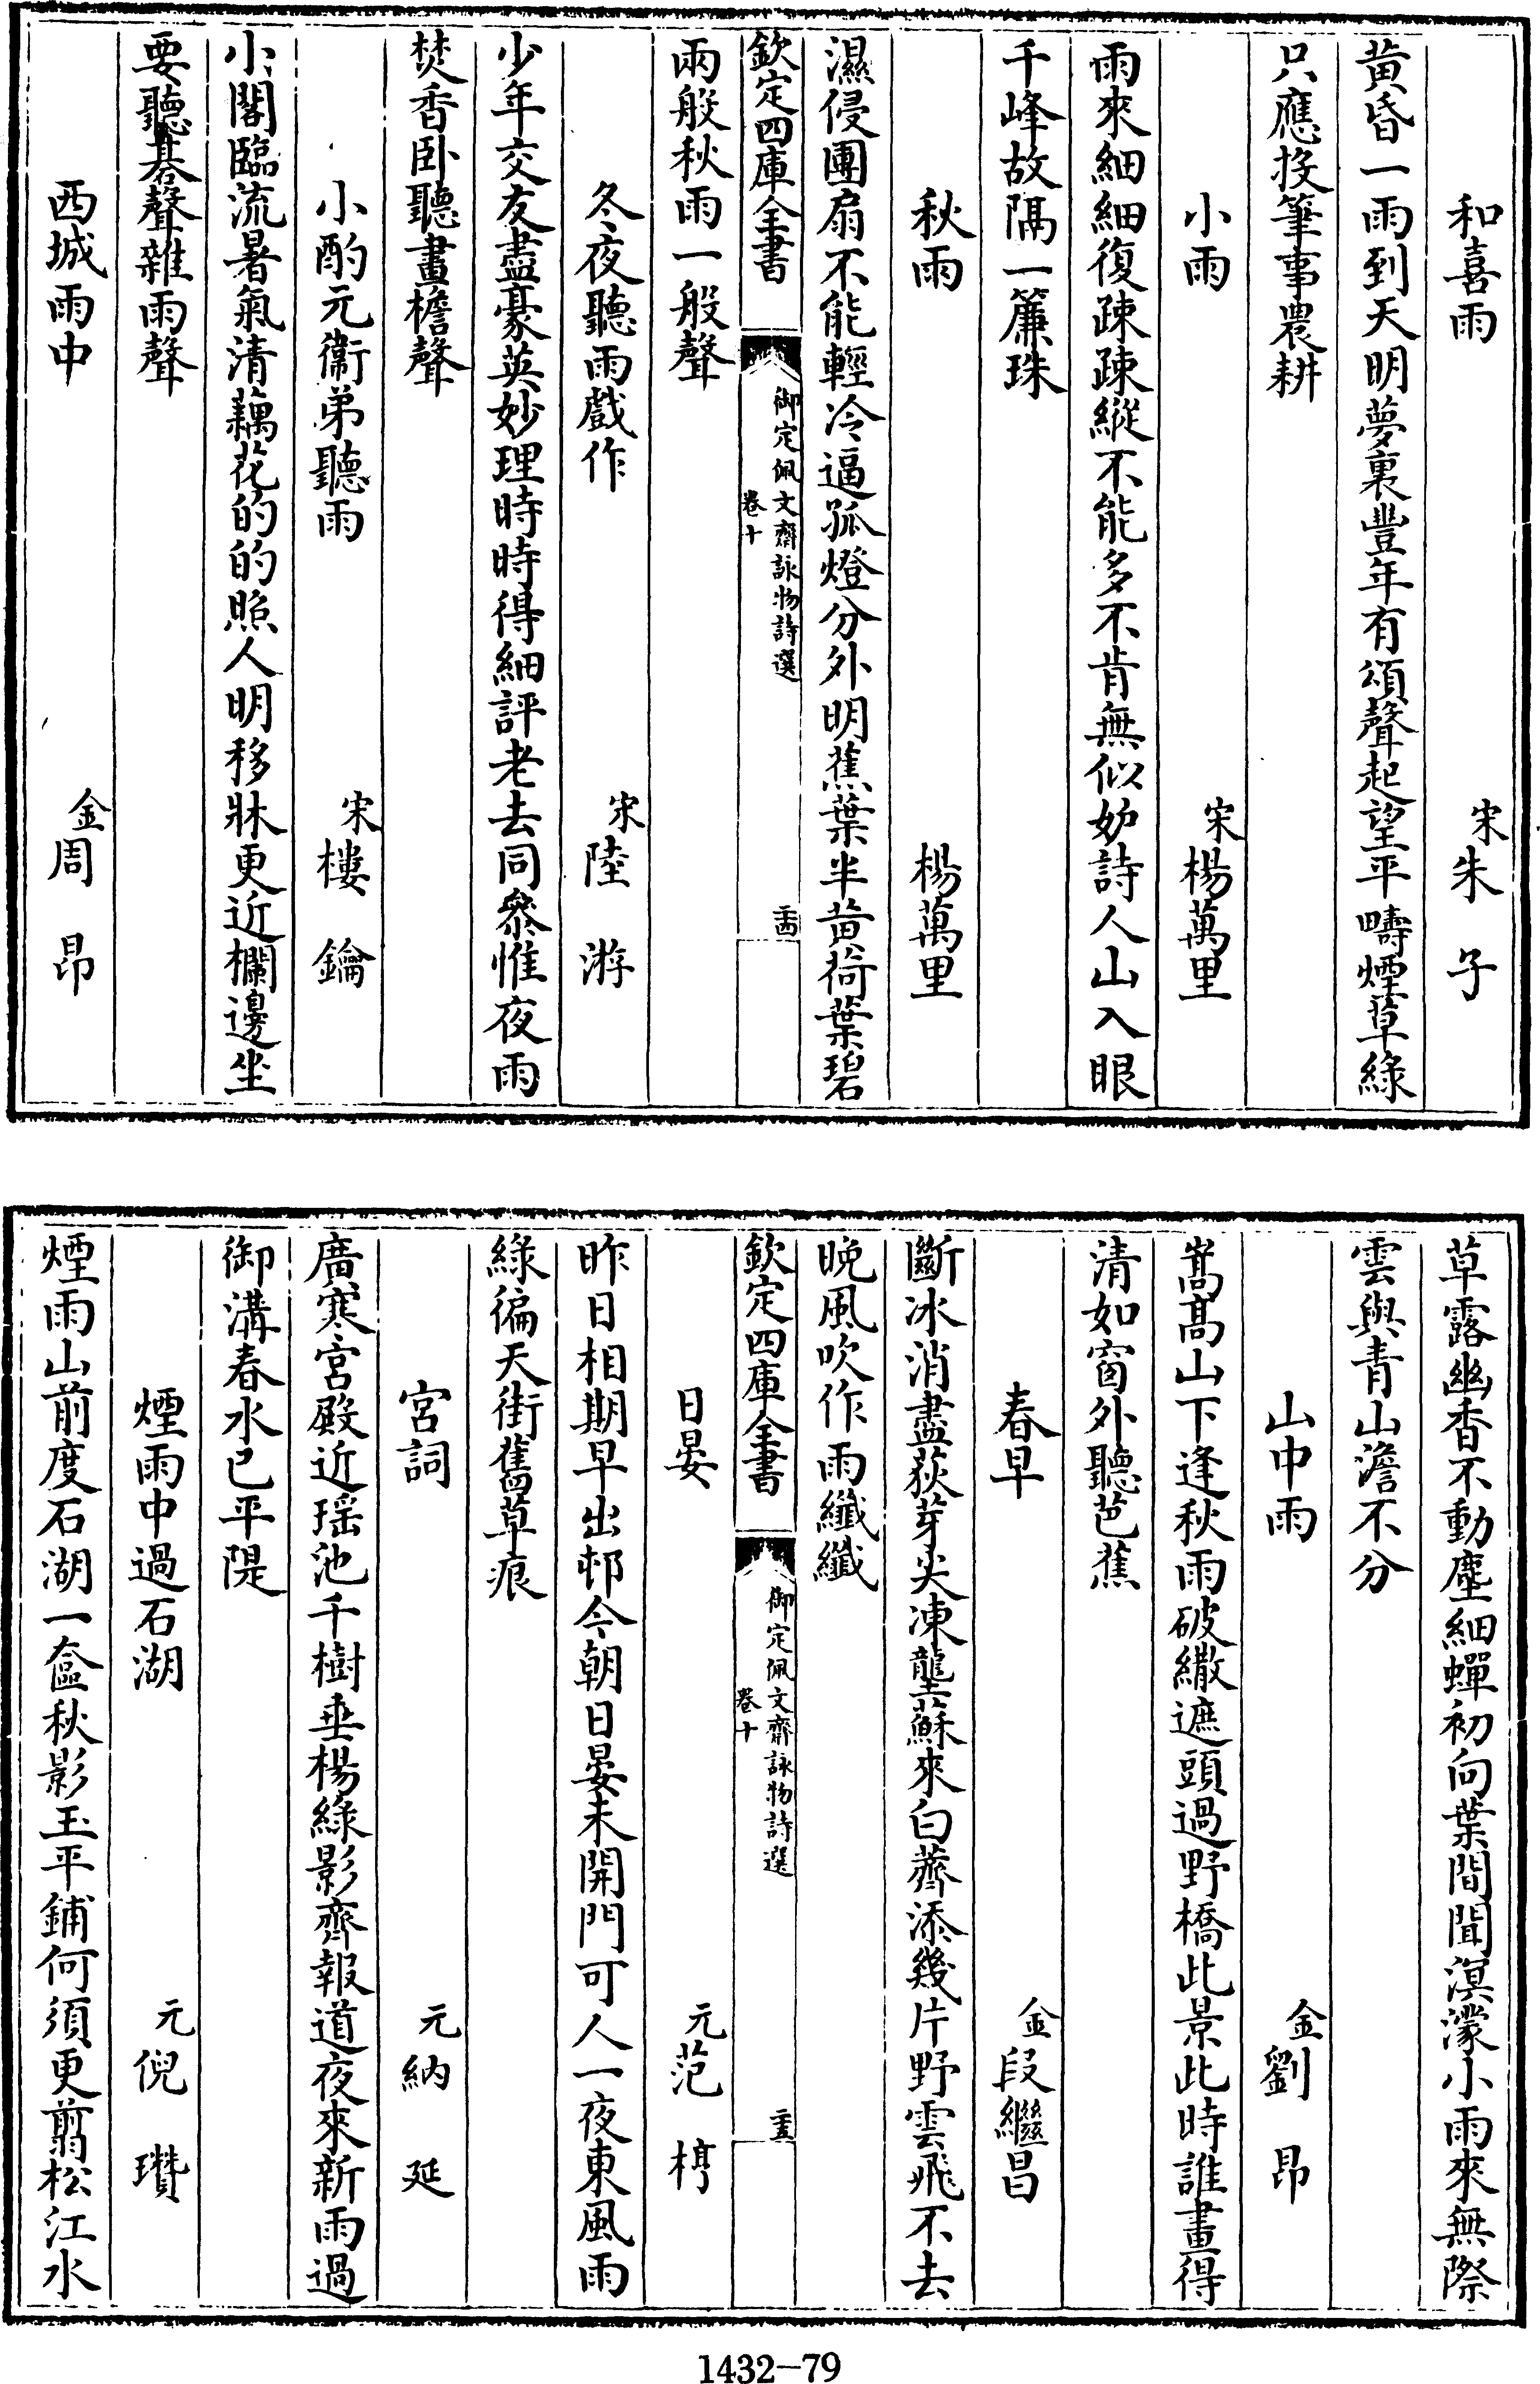 和喜雨　宋朱子
黃昏一雨到天明夢裏豐年有頌聲起望平疇煙草綠
只應投筆事農耕
小雨　宋楊萬里
雨來細細復疎疎縱不能多不肯無似妒詩人山入眼
千峰故隔一簾珠
秋雨　楊萬里
濕侵團扇不能輕冷逼孤燈分外明蕉葉半黃荷葉碧
欽定四庫全書　御定佩文齋詠物詩選　卷十
兩般秋雨一般聲
冬夜聽雨戲作　宋陸游
少年交友盡豪英妙理時時得細評老去同參惟夜雨
焚香卧聽畫檐聲
小酌元衞弟聽雨　宋樓鑰
小閣臨流暑氣清藕花的的照人明移牀更近欄邊坐
要聽碁聲雜雨聲
西城雨中　金周昂
草露幽香不動塵細蟬初向葉間聞溟濛小雨來無際
雲與青山澹不分
山中雨　金劉昂
嵩髙山下逢秋雨破繖遮頭過野橋此景此時誰畫得
清如窗外聽芭蕉
春早　金段繼昌
斷冰消盡荻芽尖凍壟蘇來白薺添幾片野雲飛不去
晚風吹作雨纖纖
欽定四庫全書　御定佩文齋詠物詩選　卷十
日晏　元范梈
昨日相期早出邨今朝日晏未開門可人一夜東風雨
綠徧天街舊草痕
宮詞　元納延
廣寒宮殿近瑶池千樹垂楊綠影齊報道夜來新雨過
御溝春水已平隄
煙雨中過石湖　元倪瓚
煙雨山前度石湖一奩秋影玉平鋪何須更翦松江水
1432-79